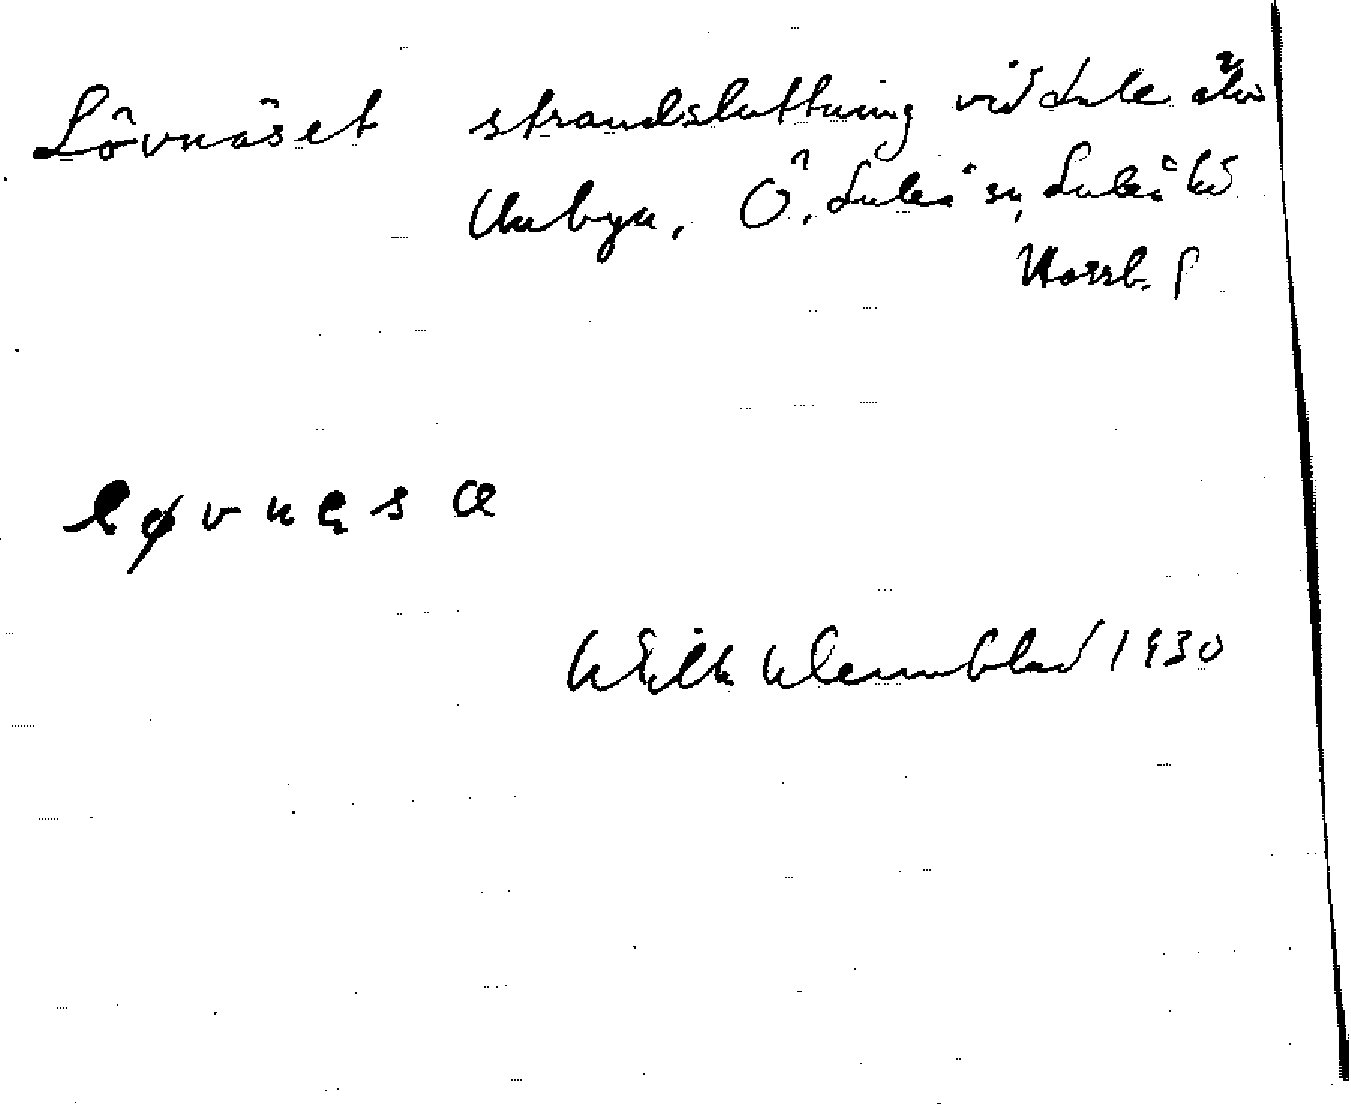 Lövnäset strandsluttning vid Lule älv
Unbyn, Ö. Luleå sn, Luleå hd
Norrb. l
løvnęsæ
Wilh Wennblad 1930